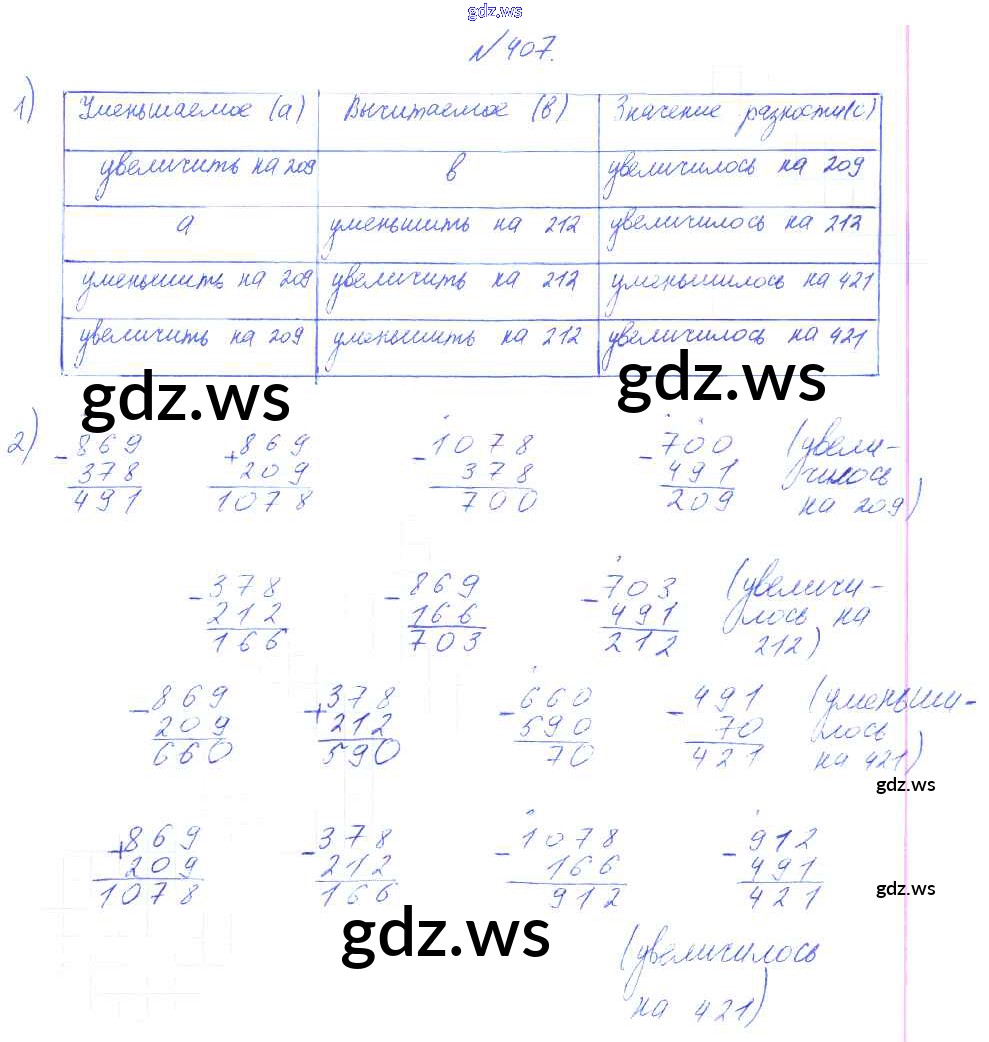 gdz.ws
№407.
1)
Уменьшаемое (а) Вычитаемое (в) Значение разности(с)
увеличить на 209 в увеличилось на 209
а уменьшить на 212 увеличилось на 212
уменьшить на 209 увеличить на 212 уменьшилось на 421
увеличить на 209 уменьшить на 212 увеличилось на 421
gdz.ws gdz.ws
2) - 869 + 869 - 1078 - 700 (увели-
378 209 378 491 чилось
491 1078 700 209 на 209)
- 378 - 869 - 703 (увеличи-
212 166 491 лось на
166 703 212 212)
- 869 + 378 - 660 - 491 (уменьши-
209 212 590 70 лось
660 590 70 421 на 421)
gdz.ws
+ 869 - 378 - 1078 - 912
209 212 166 491
1078 166 912 421
gdz.ws
gdz.ws
(увеличилось
на 421)